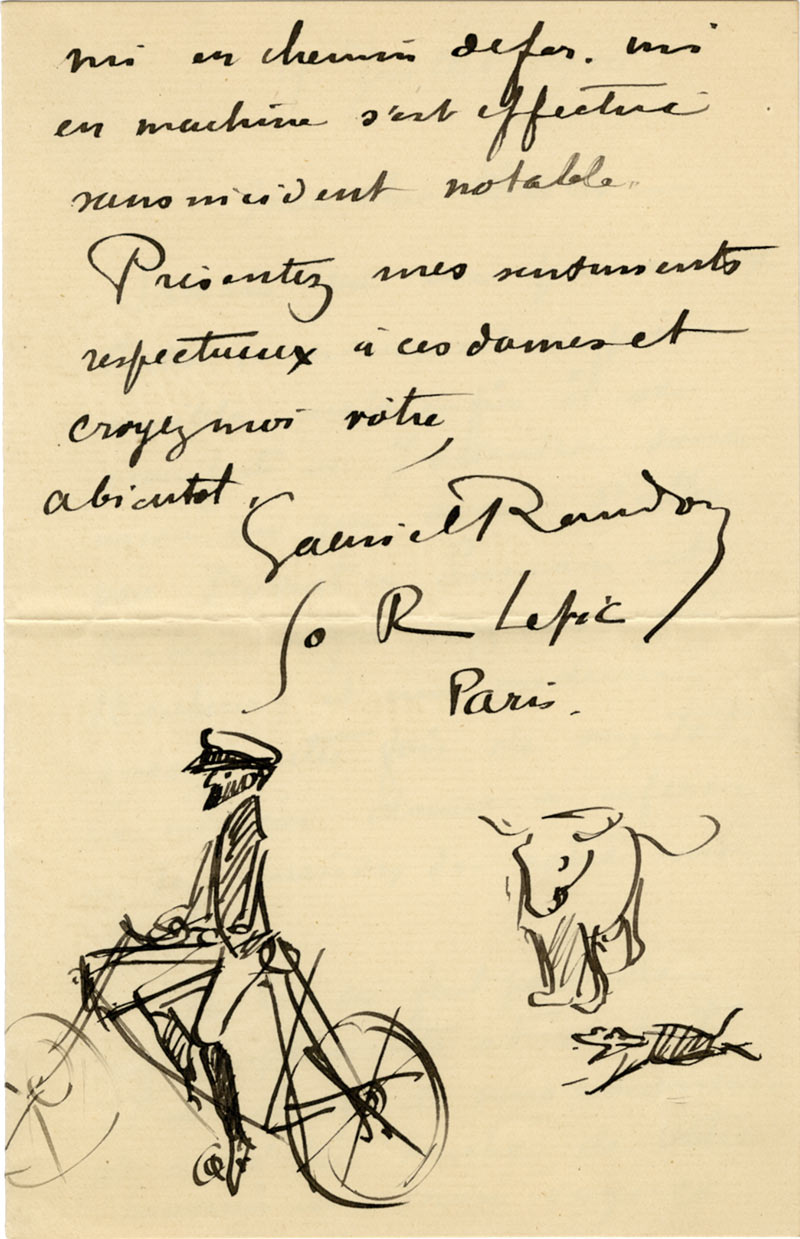 mi en chemin de fer. mi
en machine s'est effectué
sans incident notable.
Présentez mes sentiments
respectueux à ces dames et
croyez moi vôtre,
a bientot.
Gabriel Randon
R Lepic
Paris.